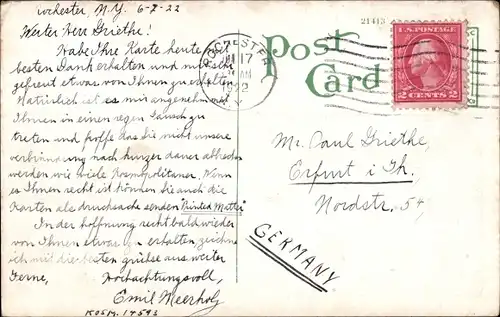 Rochester, N.Y. 6-7-22
Werter Herr Griethe!
Habe Ihre Karte heute mit
besten Dank erhalten und mich sehr
gefreut etwas von Ihnen zu erhalten
Natürlich ist es mir angenehm mit
Ihnen in einen regen Tausch zu
treten und hoffe das Sie nicht unsere
verbindung nach kurzer dauer abbrechen
werden wie viele Kosmopolitaner. Wenn
es Ihnen recht ist können Sie auch die
Karten als drucksache senden Printed Matter
In der hoffnung recht bald wieder
von Ihnen etwas zu erhalten zeichne
ich mit die besten grüße aus weiter
Ferne, Hochachtungsvoll,
Emil Meerholz
KOSM. 14593
21413
Post
Card
ROCHESTER
17
AM
1922
N. Y.
U.S. POSTAGE
2 CENTS 2
Mr. Paul Griethe,
Erfurt i. Th.
Nordstr. 54,
GERMANY